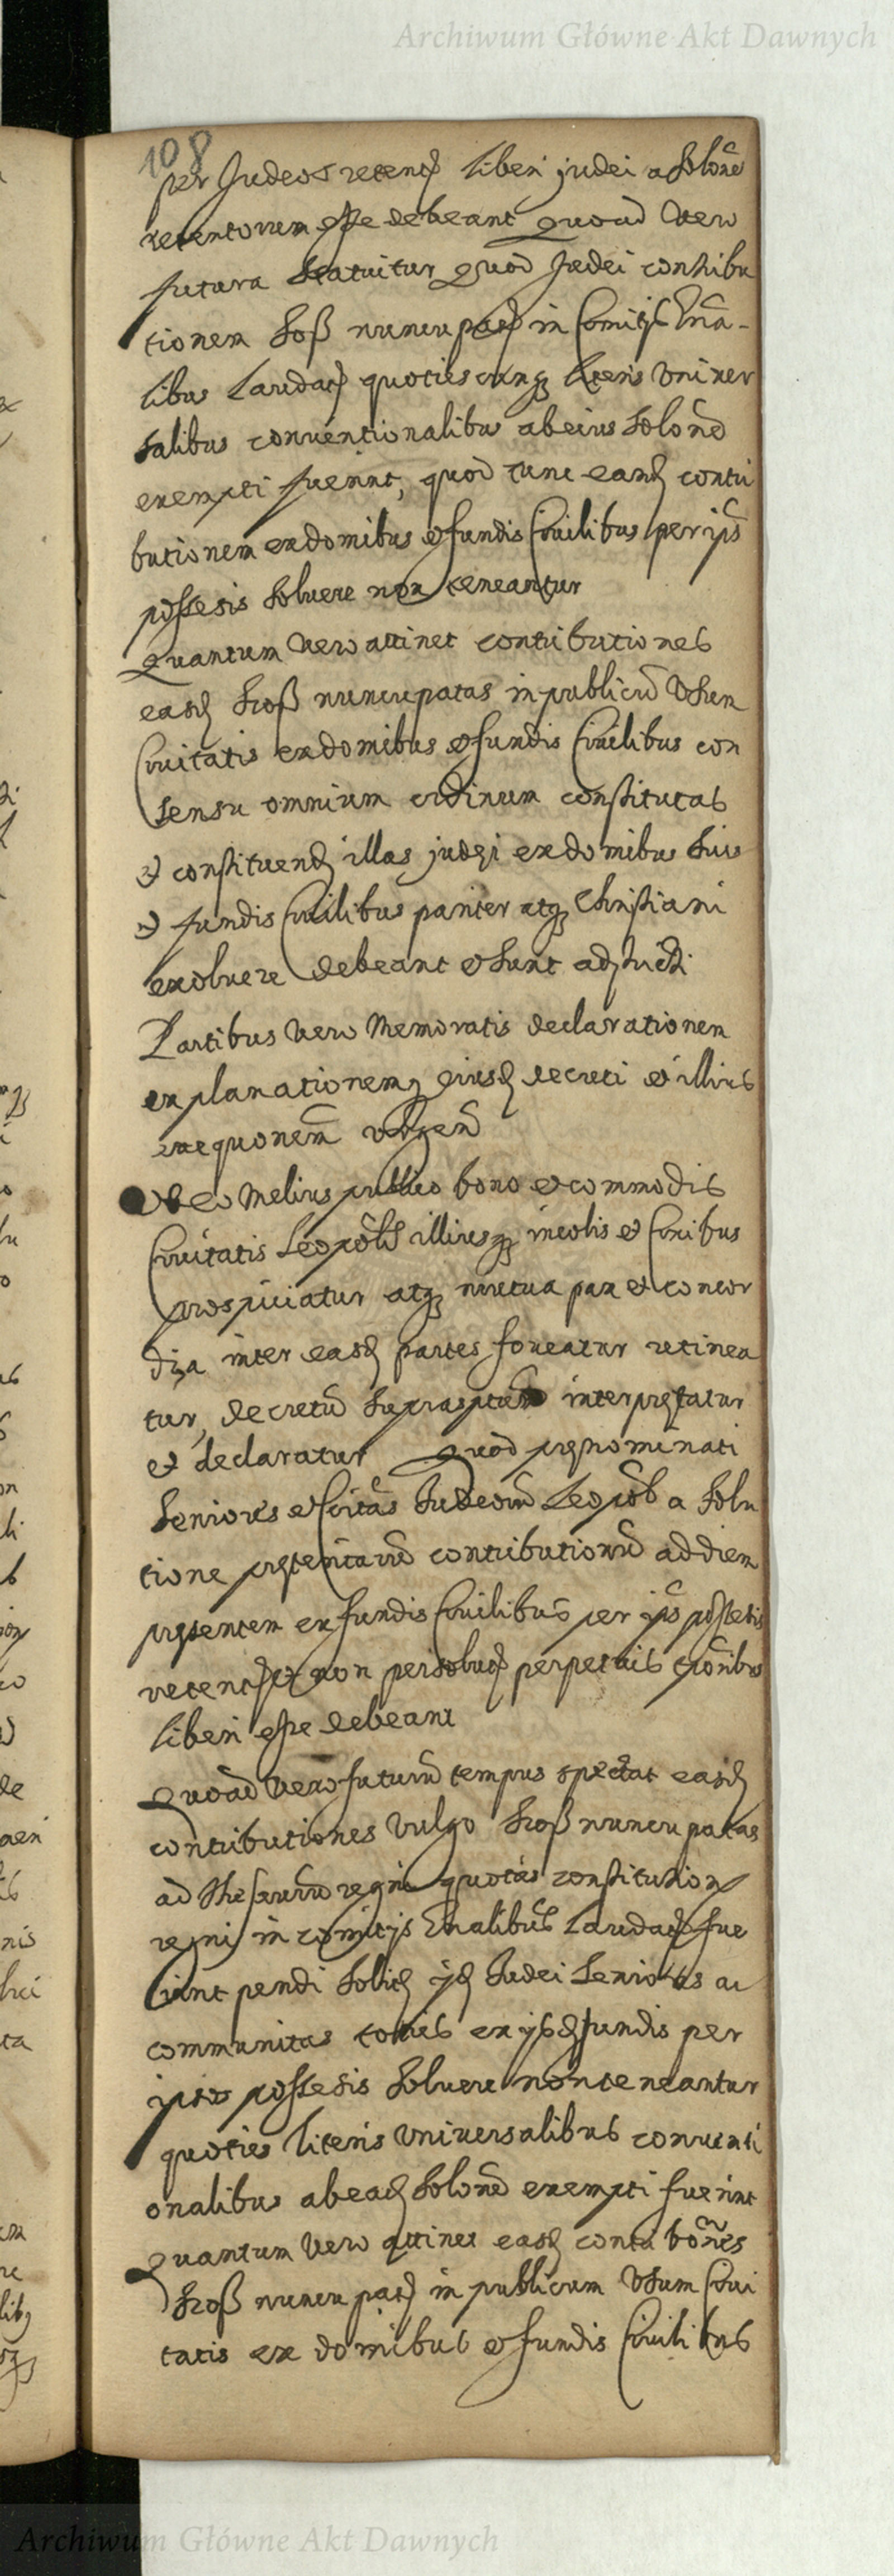 Archiwum Główne Akt Dawnych
108
per Judeos retent liberi judei a Solõne
retentorum esse debeant Quoad Vero
futura Statuitur quod Judei contribu
tionem Soß nuncupat in Comitijs Gñã-
libus Laudat quotiescunq literis Univer
salibus conventionalibus ab eius Solõne
exempti fuerint, quod tunc eand contri
butionem ex domibus et fundis Civilibus per ip̃s
possesis Soluere non teneantur
Quantum Vero attinet contributiones
easd Szoß nuncupatas in publicũ Vsum
Civitatis ex domibus et fundis Civilibus con
sensu omnium ordinum constitutas
et constituend illas judei ex domibus Suis
et fundis Civilibus pariter atq Christiani
exoluere debeant et Sunt adstricti
Partibus Vero Memoratis declarationem
explanationemq eiusd decreti et illius
exequonem
Vt eo Melius publico bono et commodis
Civitatis Leopolis illiusq incolis et Civibus
prospiciatur atq mutua pax et concor
dia inter easd partes foveatur retinea
tur, decretũ Suprasptum interpretatur
et declaratur quod prenominati
Seniores et Coitas Judeorũ Leopol a Solu
tione pretentarũ contributionũ ad diem
presentem ex fundis Civilibus per ip̃s possesis
retent et non persolut perpetuis tẽporibus
liberi esse debeant
Quoad Vero futurũ tempus spectat easd
contributiones Vulgo Szoß nuncupatas
ad Thesaurũ regni quotas constitution
regni in comitijs Gnalibus Laudat fue
rint pendi Solit ijd Judei Seniores ac
communitas toties ex ijsd fundis per
ipsos possesis Soluere non teneantur
quoties literis Vniversalibus conventi
onalibus ab ead Solõne exempti fuerint
Quantum Vero attinet easd contribõnes
Szoß nuncupat in publicum Vsum Civi
tatis ex domibus et fundis Civilibus
Archiwum Główne Akt Dawnych